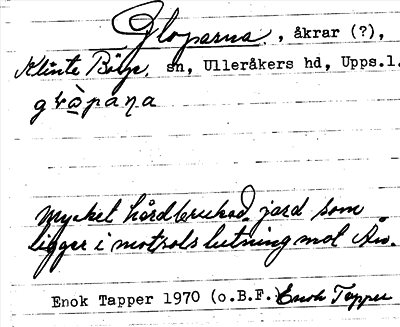 Gloparna, åkrar (?),
Klinte Börje, sn, Ulleråkers hd, Upps.l.
grò̱paṇa
Mycket hårdbrukad jord som
ligger i motsols lutning mot Ån.
Enok Tapper 1970 (o.B.F.) Enok Tapper